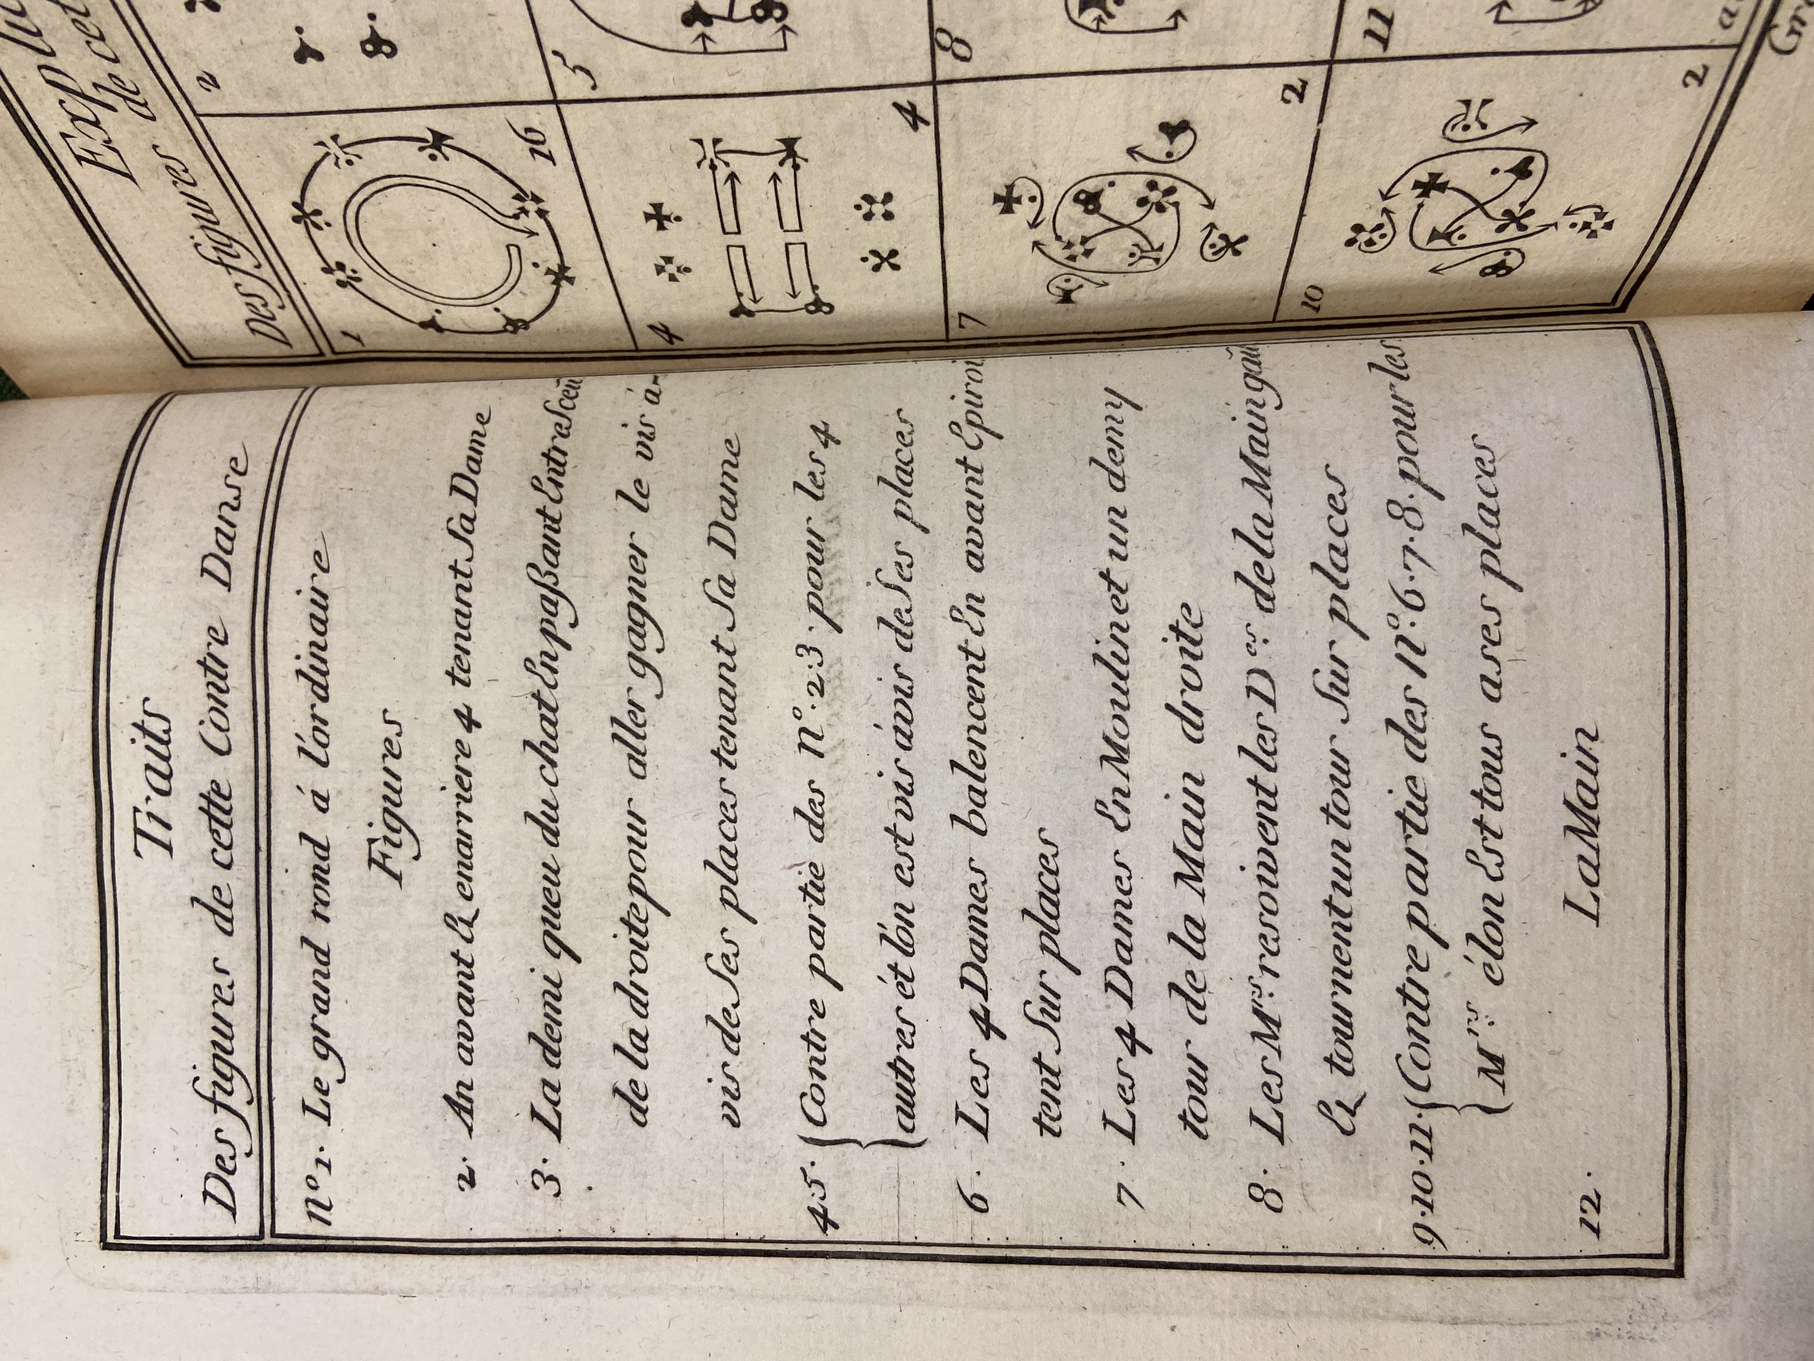 Traits
Des figures de cette Contre Danse
No. 1. Le grand rond á l'ordinaire
Figures
2. An avant & enarriere 4 tenant Sa Dame
3. La demi queu du chat En paßant Entre
de la droite pour aller gagner le vis á-
vis de Ses places tenant Sa Dame
4.5. Contre partie des No. 2.3. pour les 4
autres ét lón est vis ávis de Ses places
6. Les 4 Dames balencent En avant
tent Sur places
7. Les 4 Dames En Moulinet un demy
tour de la Main droite
8. Les Mrs. resoivent les Des. de la Main
& tournent un tour Sur places
9.10.11. Contre partie des No. 6.7.8. pour les
Mrs. élon Est tous a ses places
12. La Main
de cet
Des figures
1
16
2
4
4
5
7
2
8
10
2
11